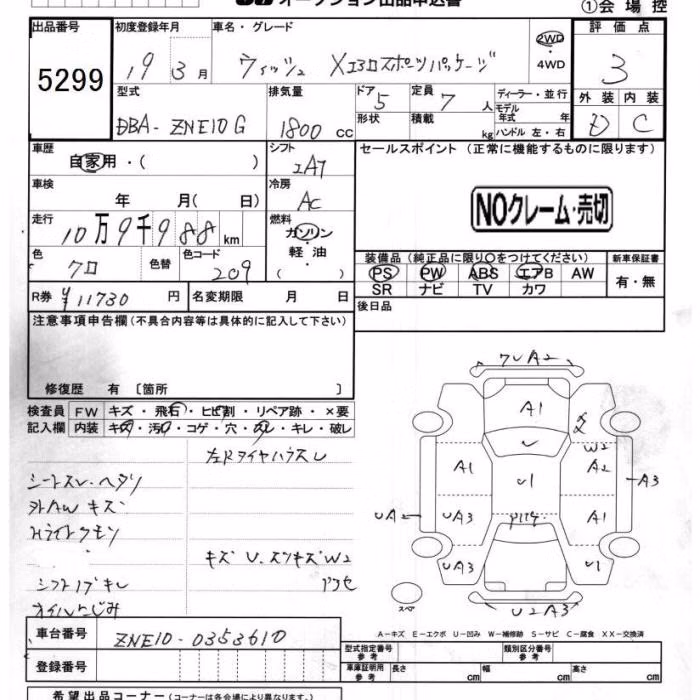 オークション出品申込書
①会場控
出品番号
5299
初度登録年月
19 3月
車名・グレード
ウィッシュ Xエアロスポーツパッケージ
2WD
4WD
評価点
3
型式
DBA-ZNE10G
排気量
1800 CC
ドア
5
定員
7人
ディーラー・並行
モデル年式 年
形状
積載 kg
ハンドル 左・右
外装 内装
D C
車歴
自家用・( )
シフト
IAT
車検
年 月( 日)
冷房
AC
走行
10万9千988km
燃料
ガソリン・軽油・( )
色
クロ
色替
色コード
209
R券 ¥11730円
名変期限 月 日
セールスポイント(正常に機能するものに限ります)
NOクレーム・売切
装備品(純正品に限り○をつけてください)
PS PW ABS エアB AW
SR ナビ TV カワ
新車保証書
有・無
後日品
注意事項申告欄(不具合内容等は具体的に記入して下さい)
修復歴 有〔箇所 〕
検査員記入欄
FW キズ・飛石・ヒビ割・リペア跡・×要
内装 キズ・汚れ・コゲ・穴・スレ・キレ・破レ
シートスレ・ヘタリ
外AWキズ
Hライトクモリ
シフトノブキレ
オイルにじみ
キズU.スンキズW2
A1
U
W2
A1
A2
U1
A3
UA2
UA3
A1
UA3
U1
U2A3
スペア
A-キズ E-エクボ U-凹み W-補修跡 S-サビ C-腐食 XX-交換済
車台番号
ZNE10-0353610
登録番号
型式指定番号参考
類別区分番号参考
車庫証明用参考
長さ cm
幅 cm
高さ cm
希望出品コーナー(コーナーは各会場により異なります。)